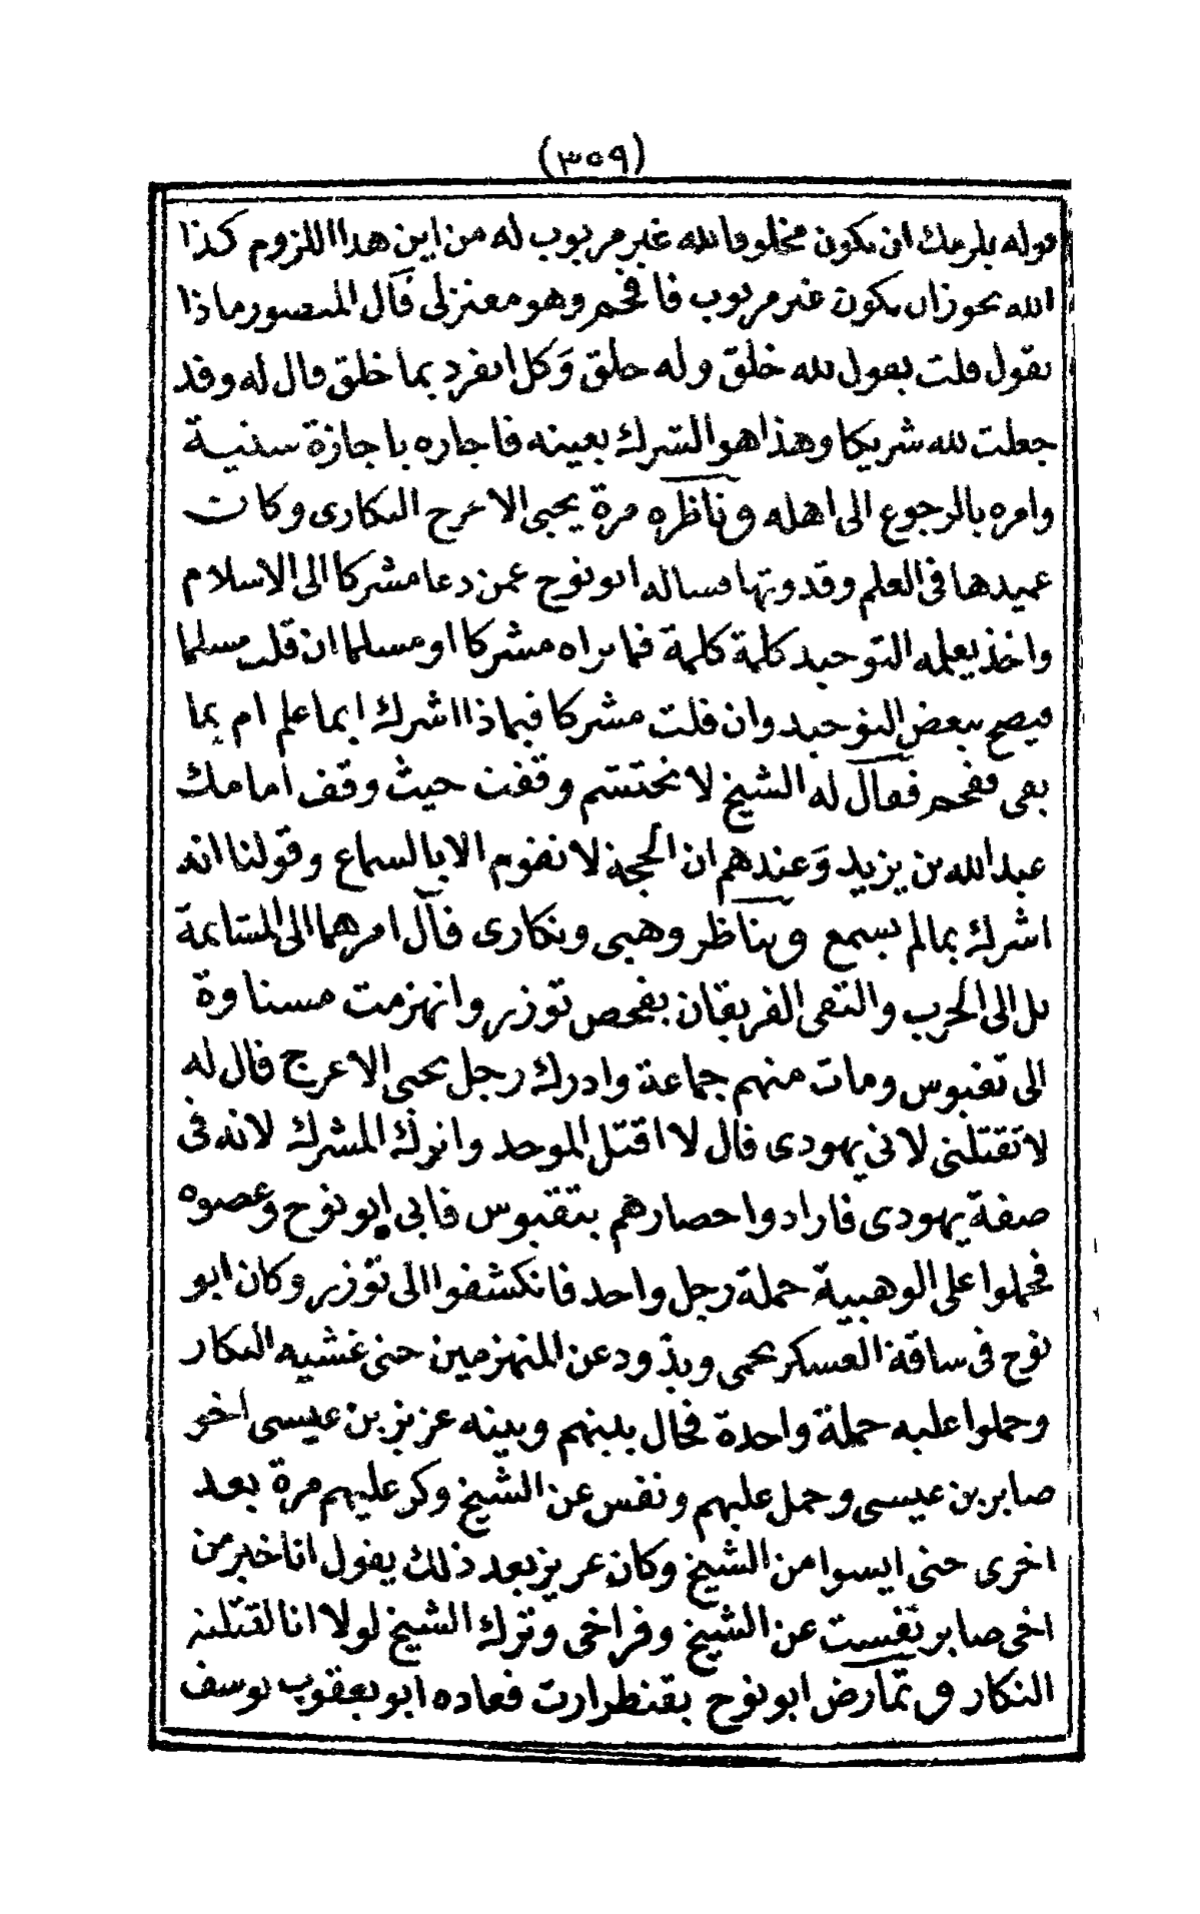 (٣٥٩)
قوله يلزمك ان يكون مخلوقا لله غير مربوب له من اين هذا اللزوم كذا
الله يجوز ان يكون غير مربوب فافحم وهو معتزلى قال المنصور ماذا
تقول قلت يقول لله خلق وله خلق وكل انفرد بما خلق قال له وقد
جعلت لله شريكا وهذا هو الشرك بعينه فاجازه باجازة سنية
وامره بالرجوع الى اهله وناظره مرة يحيى الاعرج النكارى وكان
عميدها فى العلم وقدوتها فساله ابو نوح عمن دعا مشركا الى الاسلام
واخذ يعلمه التوحيد كلمة كلمة فما تراه مشركا او مسلما ان قلت مسلما
فيصح ببعض التوحيد وان قلت مشركا فبماذا اشرك ابما علم ام بما
بقى ففحم فقال له الشيخ لا تحتشم وقفت حيث وقف امامك
عبد الله بن يزيد وعندهم ان الحجة لا تقوم الا بالسماع وقولنا انه
اشرك بما لم يسمع وتناظر وهبى ونكارى قال امرهما الى المشاتمة
بل الى الحرب والتقى الفريقان بفحص توزر وانهزمت مسناوة
الى تقبوس ومات منهم جماعة وادرك رجل يحيى الاعرج قال له
لا تقتلنى لانى يهودى قال لا اقتل الموحد واترك المشرك لانه فى
صفة يهودى فارادوا حصارهم بتقبوس فابى ابو نوح وعصوه
فحملوا على الوهبية حملة رجل واحد فانكشفوا الى توزر وكان ابو
نوح فى ساقة العسكر يحمى ويذود عن المنهزمين حتى غشيه النكار
وحملوا عليه حملة واحدة فحال بينهم وبينه عزيز بن عيسى اخو
صابر بن عيسى وحمل عليهم ونفس عن الشيخ وكر عليهم مرة بعد
اخرى حتى ايسوا من الشيخ وكان عزيز بعد ذلك يقول انا خير من
اخى صابر نفست عن الشيخ وفر اخى وترك الشيخ لولا انا لقتلته
النكار وتمارض ابو نوح بقنطرارت فعاده ابو يعقوب يوسف